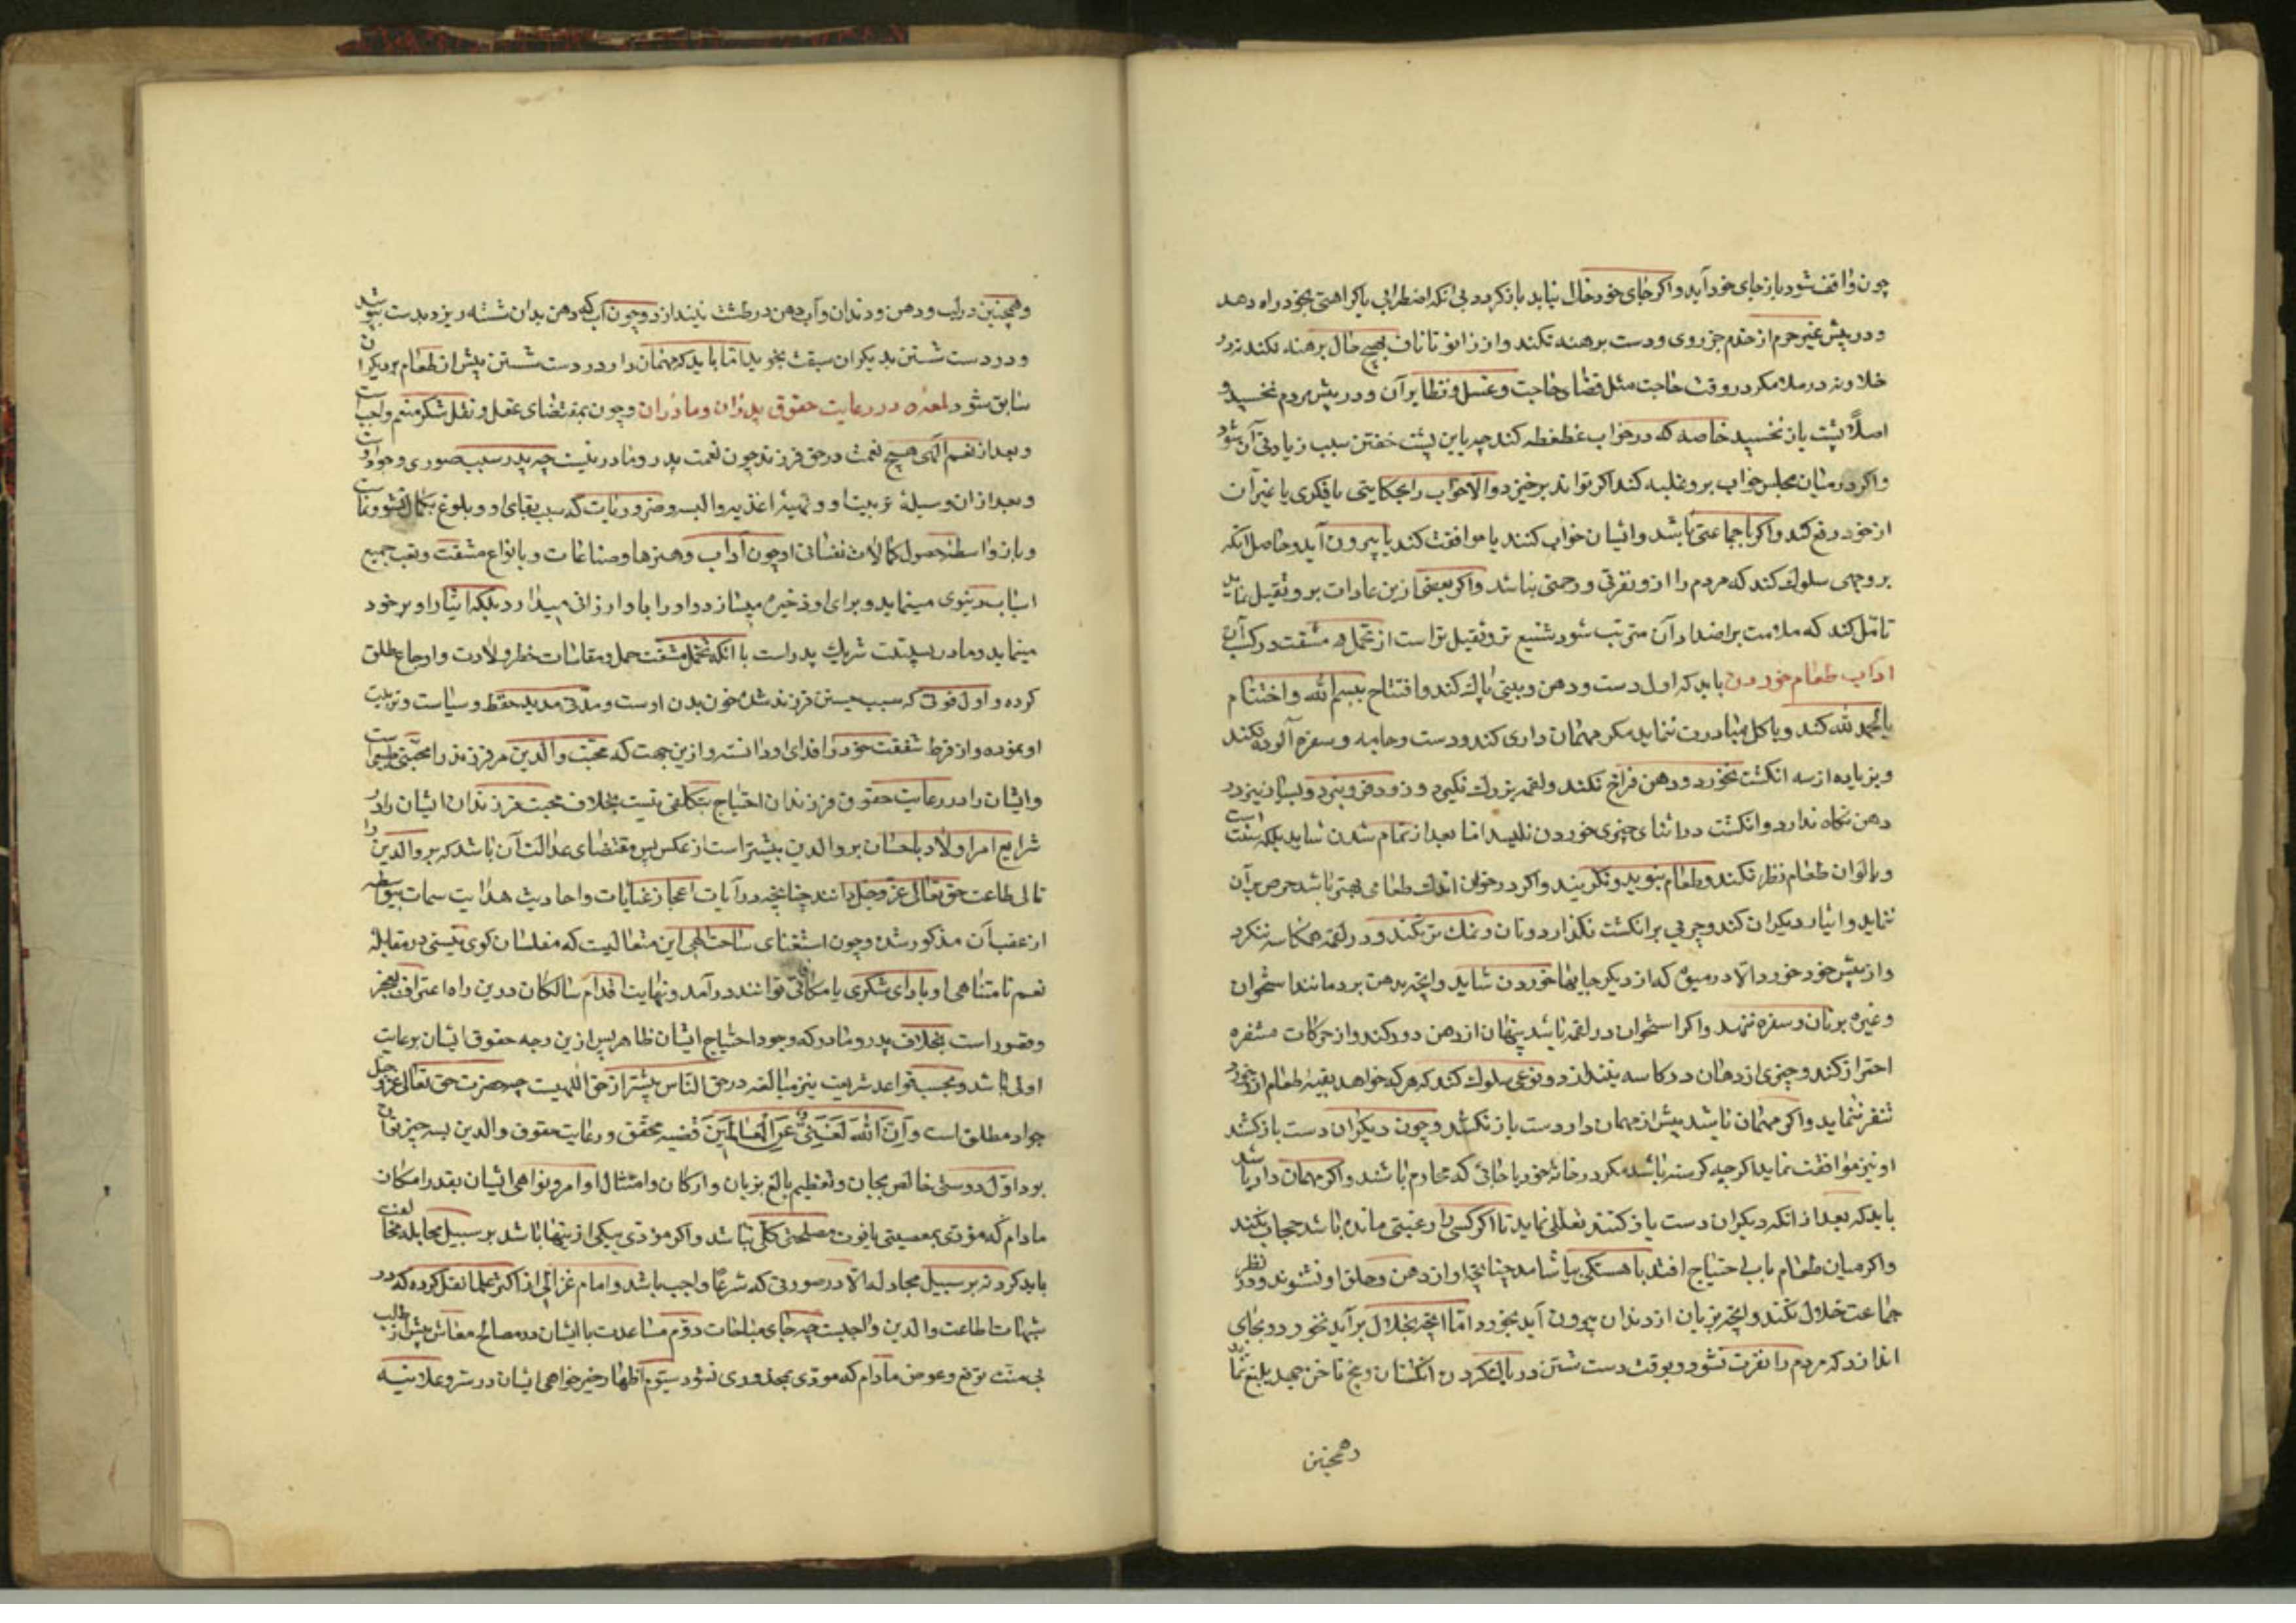 چون واقف شود باز جای خود آید و اکر جای خود خال نیابد باز کردد بی انکه اضطرابی یا کراهتی بخود راه دهد
و در پیش غیر حرم از خدم جز روی و دست برهنه نکند و از زانو تا ناف بهیچ حال برهنه نکند نه در
خلا و نه در ملا مکر در وقت حاجت مثل قضای حاجت و غسل و نظایر آن و در پیش مردم نخسپد و
اصلاً پشت باز نخسپد خاصه که در خواب غطغطه کند چه باین پشت خفتن سبب زیادتی آن شود
و اکر در میان مجلس خواب برو غلبه کند اکر تواند برخیزد والا خواب را بحکایتی یا فکری یا غیر آن
از خود دفع کند و اکر با جماعتی باشد و ایشان خواب کنند یا موافقت کند یا بیرون آید و حاصل انکه
بر وجهی سلوک کند که مردم را ازو نفرتی و زحمتی نباشد و اکر بعضی ازین عادات برو ثقیل نماید
تامّل کند که ملامت بر اضداد آن مترتب شود شنیع تر و ثقیل تر است از تحمل مشقت در کسب آن
اداب طعام خوردن باید که اول دست و دهن و بینی پاک کند و افتتاح ببسم الله و اختتام
بالحمد لله کند و باکل مبادرت ننماید مکر مهمان داری کند و دست و جامه و سفره آلوده نکند
و بزیاده از سه انکشت نخورد و دهن فراخ نکند و لقمه بزرک نکیرد و زود فرو نبرد و بسیار نیز در
دهن نکاه ندارد و انکشت در اثنای چیزی خوردن نلیسد اما بعد از تمام شدن شاید بلکه سنت است
و بالوان طعام نظر نکند و طعام نبوید و نکزیند و اکر در خوان اندک طعامی بهتر باشد حرص بر آن
ننماید و ایثار دیکران کند و چربی بر انکشت نکذارد و نان و نمک تر نکند و در لقمه همکاسه ننکرد
و از پیش خود خورد الا در میوه که از دیکر جایها خوردن شاید و انچه بدهن برد مانند استخوان
و غیره بر نان و سفره ننهد و اکر استخوان در لقمه باشد پنهان از دهن دور کند و از حرکات منفره
احتراز کند و چیزی از دهان در کاسه نیندازد و بنوعی سلوک کند که هر که خواهد بقیه طعام او خورد
تنفر ننماید و اکر مهمان باشد پیش از مهمان دار دست باز نکشد و چون دیکران دست باز کشند
او نیز موافقت نماید اکر چه کرسنه باشد مکر در خانه خود یا جائی که محارم باشند و اکر مهمان دار باشد
باید که بعد از انکه دیکران دست باز کشند تعللی نماید تا اکر کسی را رغبتی مانده باشد حجاب نکند
و اکر میان طعام بآب احتیاج افتد باهستکی بیاشامد چنانچه اواز دهن و حلق او نشنوند و در نظر
جماعت خلال نکند و انچه بزبان از دندان بیرون آید بخورد اما انچه بخلال برآید نخورد و بجای
اندازد که مردم را نفرت نشود و بوقت دست شستن در پاک کردن انکشتان و بیخ ناخن جهد بلیغ نماید
و همچنین
و همچنین در لب و دهن و دندان و آب دهن در طشت نیندازد و چون آب که دهن بدان شسته ریزد بدست بپوشد
و در دست شستن بدیکران سبقت نجوید اما باید که مهمان دار در دست شستن پیش از طعام بر دیکران
سابق شود لمعه در رعایت حقوق پدران و مادران و چون بمقتضای عقل و نقل شکر منعم واجبست
و بعد از نعم الهی هیچ نعمت در حق فرزند چون نعمت پدر و مادر نیست چه پدر سبب صوری وجود اوست
و بعد از ان وسیلۀ تربیت او و تهیه اغذیه و البسه و ضروریات که سبب بقای او و بلوغ بکمال نشو و نماست
و باز واسطه حصول کمالات نفسانی او چون آداب و هنرها و صناعات و بانواع مشقت و تعب جمیع
اسباب دنیوی مینماید و برای او ذخیره میسازد و او را باو ارزانی میدارد بلکه ایثار او بر خود
مینماید و مادر در سببیت شریک پدر است با انکه تحمل مشقت حمل و مقاسات خطر ولادت و اوجاع طلق
کرده و اول قوتی که سبب حیوة فرزند شده خون بدن اوست و مدتی مدید حفظ و سیاست و تربیت
او نموده و از فرط شفقت خود را فدای او دانسته و ازین جهت که محبت والدین مر فرزند را محبتی طبیعیست
و ایشان را در رعایت حقوق فرزندان احتیاج بتکلفی نیست بخلاف محبت فرزندان ایشان را در
شرایع امر اولاد باحسان بر والدین بیشتر است از عکس پس مقتضای عدالت آن باشد که بر والدین را
تالی طاعت حق تعالی عز و جل دانند چنانچه در آیات اعجاز غایات و احادیث هدایت سمات بیواسطه
از عقب آن مذکور شده و چون استغنای ساحت الهی این متعالیست که مفلسان کوی نیستی در مقابله
نعم نامتناهی او بادای شکری یا مکافاتی توانند درآمد و نهایت اقدام سالکان درین راه اعتراف بعجز
و قصور است بخلاف پدر و مادر که وجود احتیاج ایشان ظاهر پس ازین وجه حقوق ایشان برعایت
اولی باشد و بحسب قواعد شریعت نیز مبالغه در حق الناس بیشتر از حق اللهیست چه حضرت حق تعالی عز و جل
جواد مطلق است و اِنَّ اللّٰهَ لَغَنِیٌّ عَنِ الْعَالَمِینَ قضیه محقق و رعایت حقوق والدین بسه چیز توان
بود اوّل دوستی خالص بجان و تعظیم بالغ بزبان و ارکان و امتثال اوامر و نواهی ایشان بقدر امکان
مادام که مؤدی بمعصیتی یا فوت مصلحتی کلی نباشد و اکر مؤدی بیکی ازینها باشد بر سبیل مجامله مخالفت
باید کرد نه بر سبیل مجادله الا در صورتی که شرعاً واجب باشد و امام غزالی از اکثر علما نقل کرده که در
شبهات اطاعت والدین واجبست چه جای مباحات دوّم مساعدت با ایشان در مصالح معاش پیش از طلب
بی منّت توقع و عوض مادام که مودی بمحذوری نشود سیّوم اظهار خیر خواهی ایشان در سر و علانیه